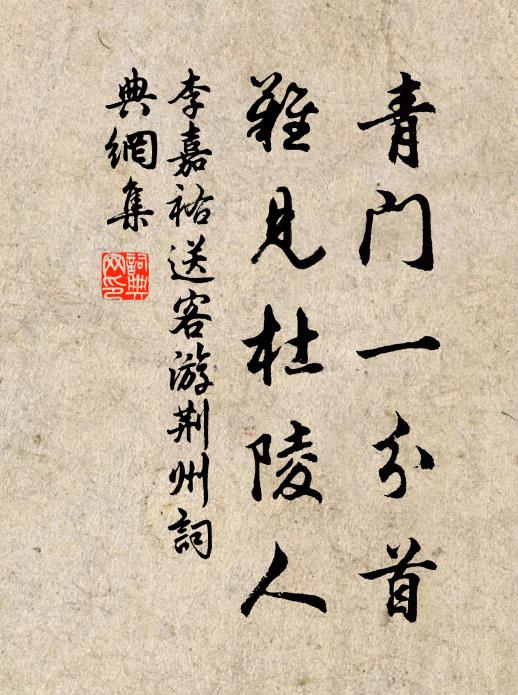 青门一分首
难见杜陵人
李嘉祐送客游荆州詞
典網集
詞典
网印